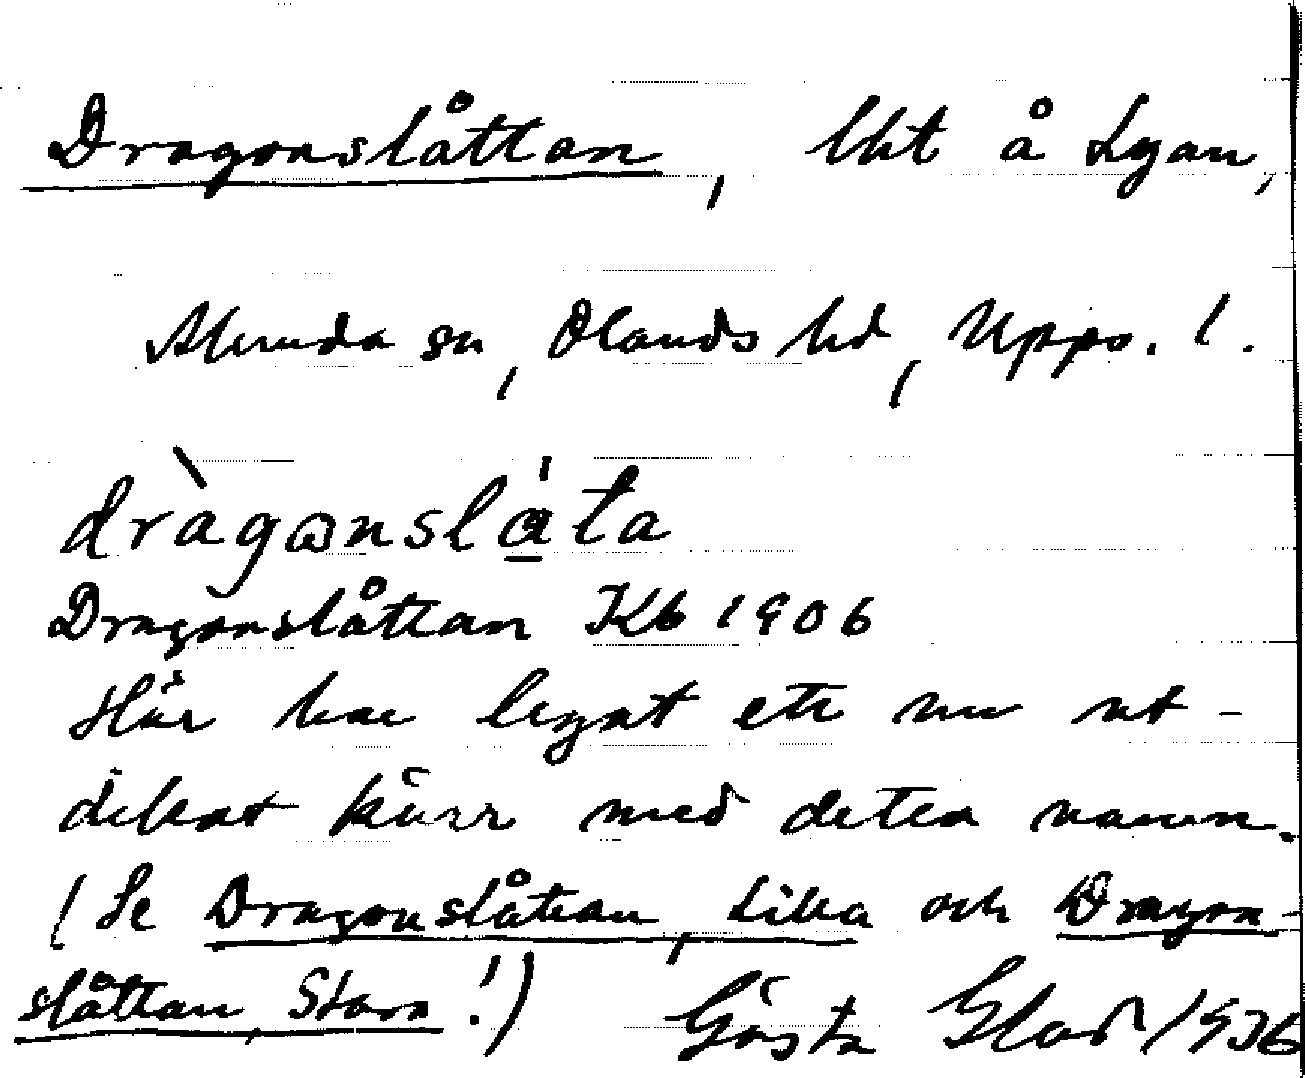 Dragonslåttan, lht å Lyan,
Alunda sn, Olands hd, Upps. l.
dràgωnslá̱ta
Dragonslåttan Kb 1906
Här har legat ett nu ut-
dikat kärr med detta namn.
(Se Dragonslåttan, Lilla och Dragon-
slåttan, Stora!) Gösta Glad 1936